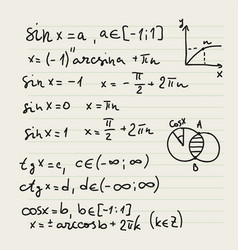 sin x = a, a∈[-1;1]
x = (-1)ⁿ arcsin a + πn
sin x = -1 x = -π/2 + 2πn
sin x = 0 x = πn
sin x = 1 x = π/2 + 2πn
tg x = c, c∈(-∞;∞)
ctg x = d, d∈(-∞;∞)
cos x = b, b∈[-1:1]
x = ± arccos b + 2πk (k∈Z)
y
n
x
cos x
A
B